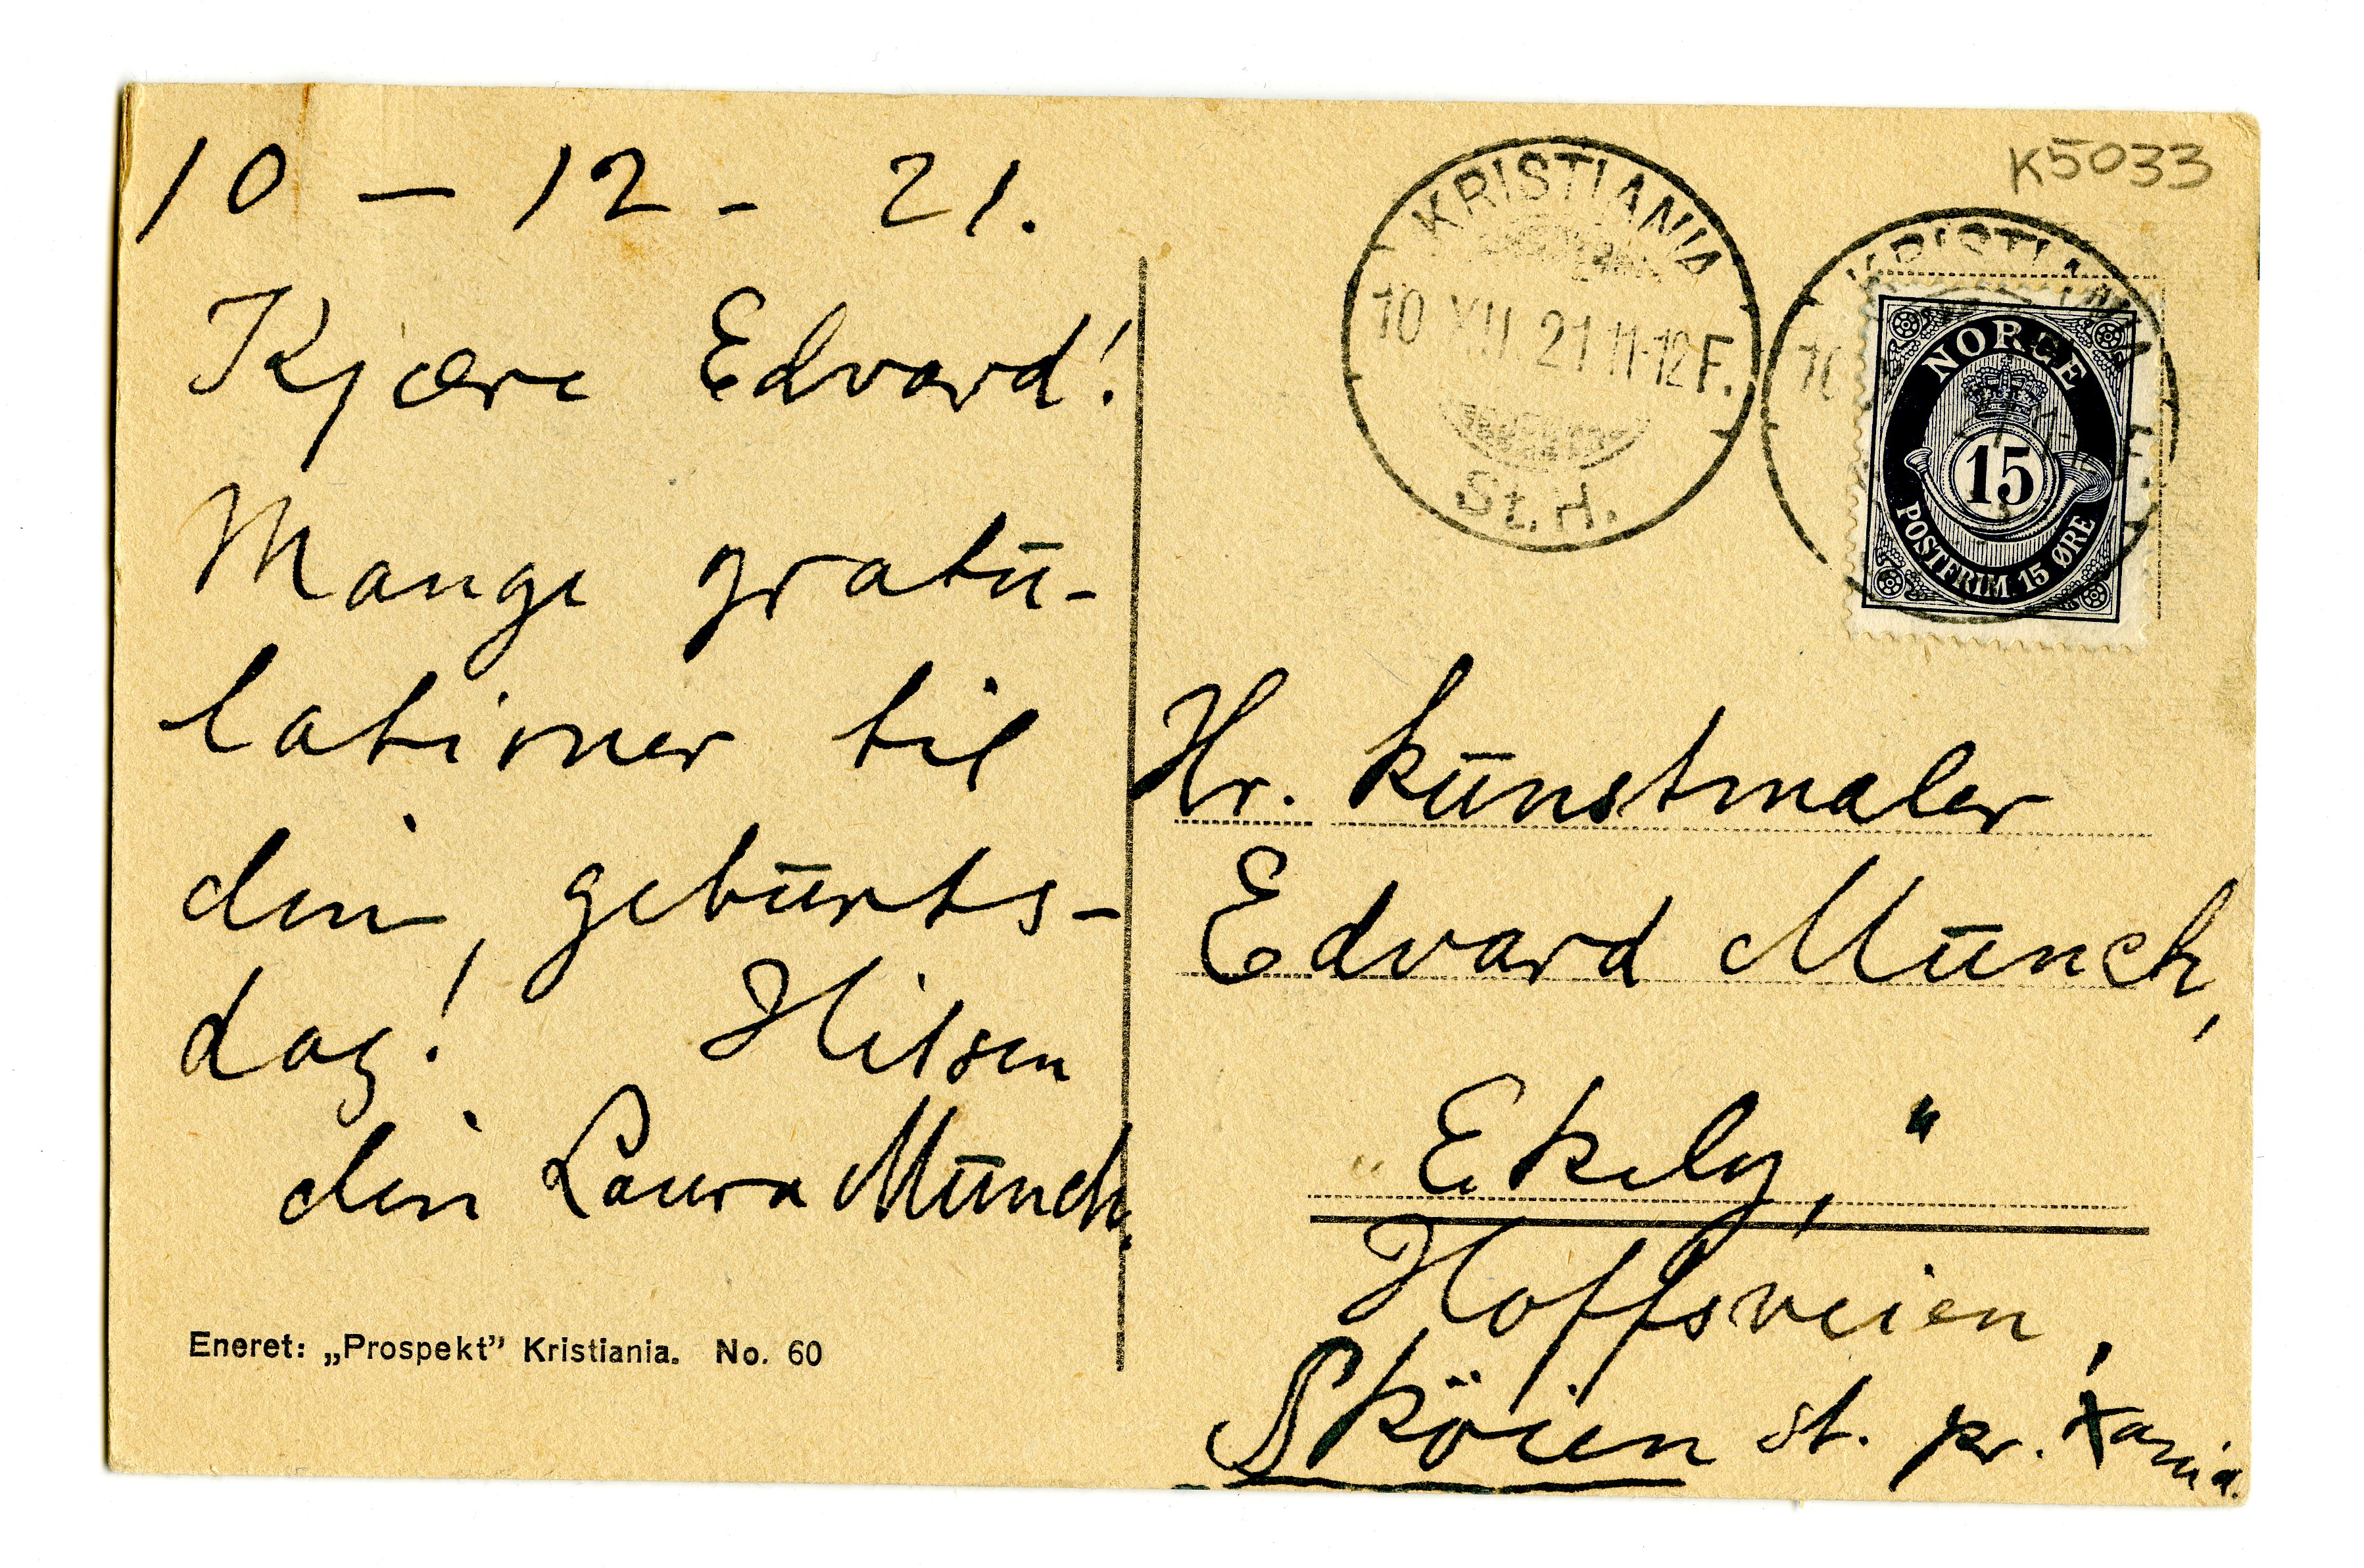 10 – 12 – 21.
Kjære Edvard!
Mange gratū-
lationer til
din, gebūrts-
dag! Hilsen
din Laura Mūnch.
Eneret: „Prospekt” Kristiania. No. 60
K5033
KRISTIANIA
10 XII. 21 11-12 F.
St. H.
KRISTIANIA
NORGE
15
POSTFRIM. 15 ØRE
Hr. kūnstmaler
Edvard Mūnch,
„Ekely,“
Hoffsveien,
Sköien st. pr. Xania.